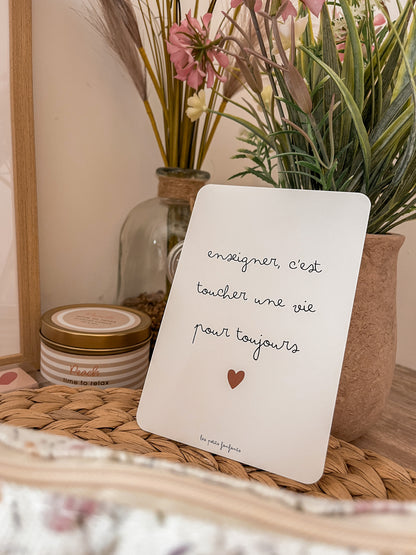 enseigner, c'est
toucher une vie
pour toujours
les petits fanfants
time to relax